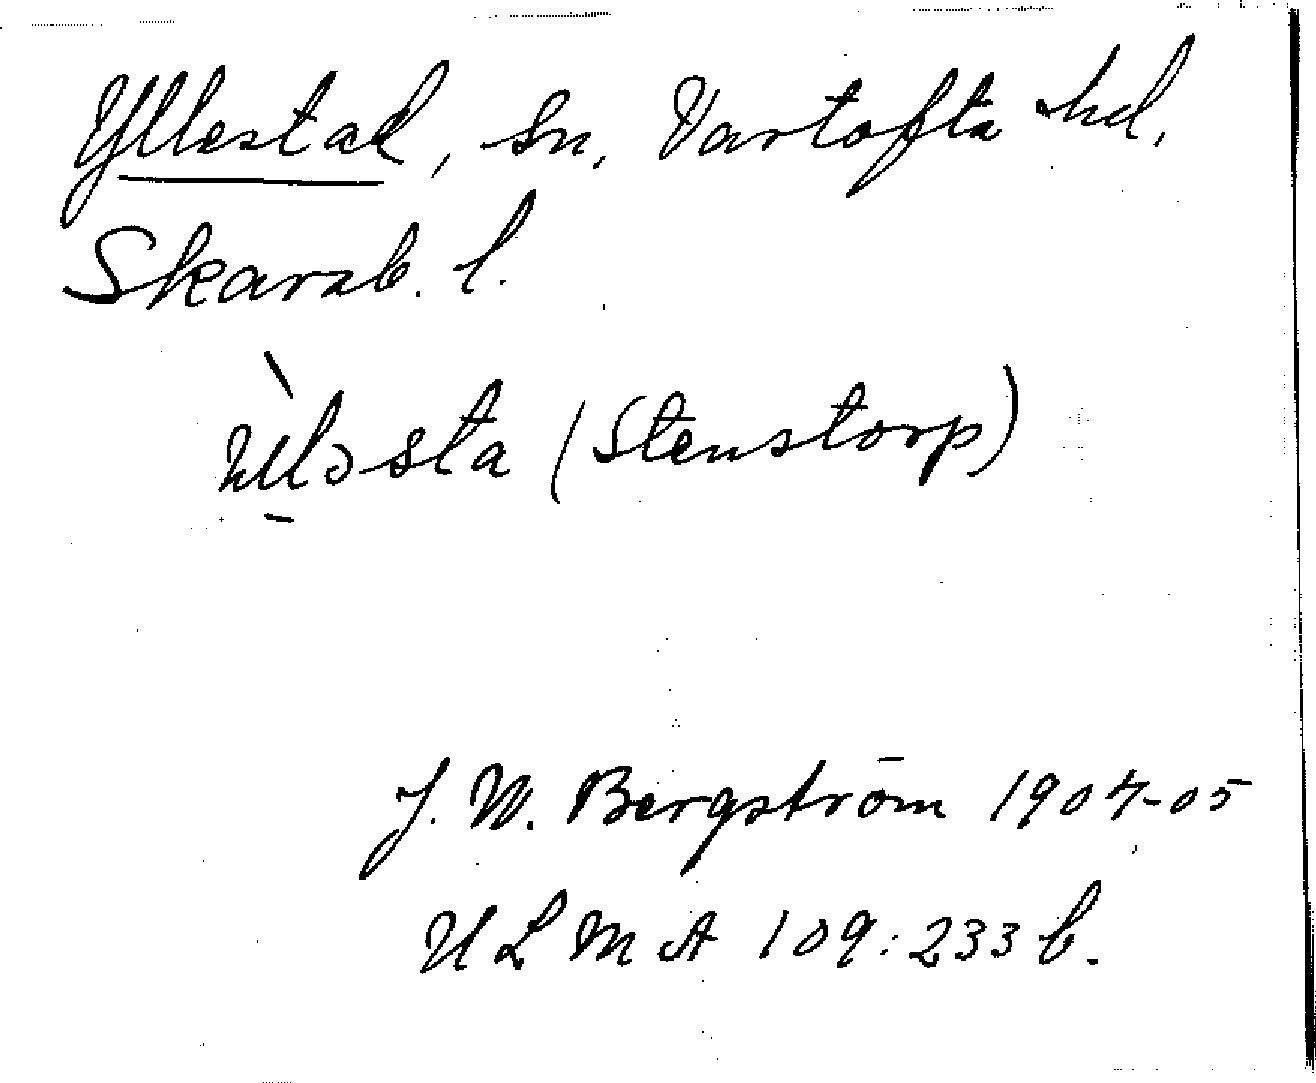 Yllestad, sn, Vartofta hd,
Skarab. l.
ùlɔsta (Stenstorp)
J. W. Bergström 1904-05
ULMA 109:233 b.